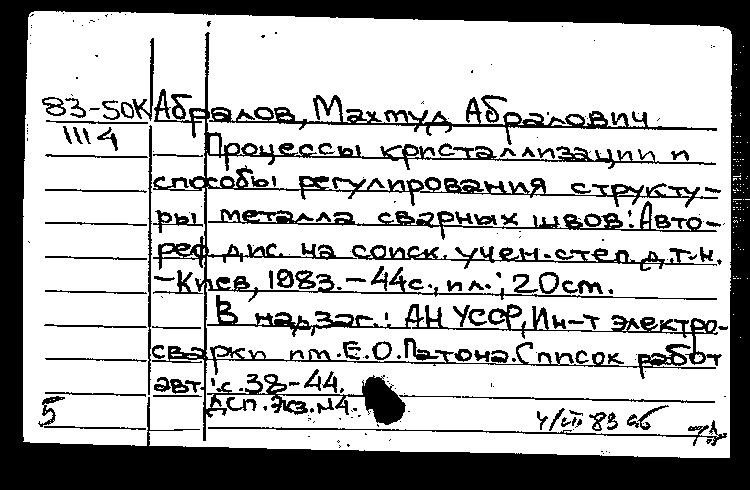 83-50К Абралов, Махмуд Абралович
1114
Процессы кристаллизации и
способы регулирования структу-
ры металла сварных швов: Авто-
реф. дис. на соиск. учен. степ. д.т.н.
-Киев, 1983. - 44с., ил.; 20cm.
В над.заг.: АН УССР, Ин-т электро-
сварки им. Е.О.Патона. Список работ
авт.: с.38-44.
ДСП. Экз.№4.
5
4/VII 83